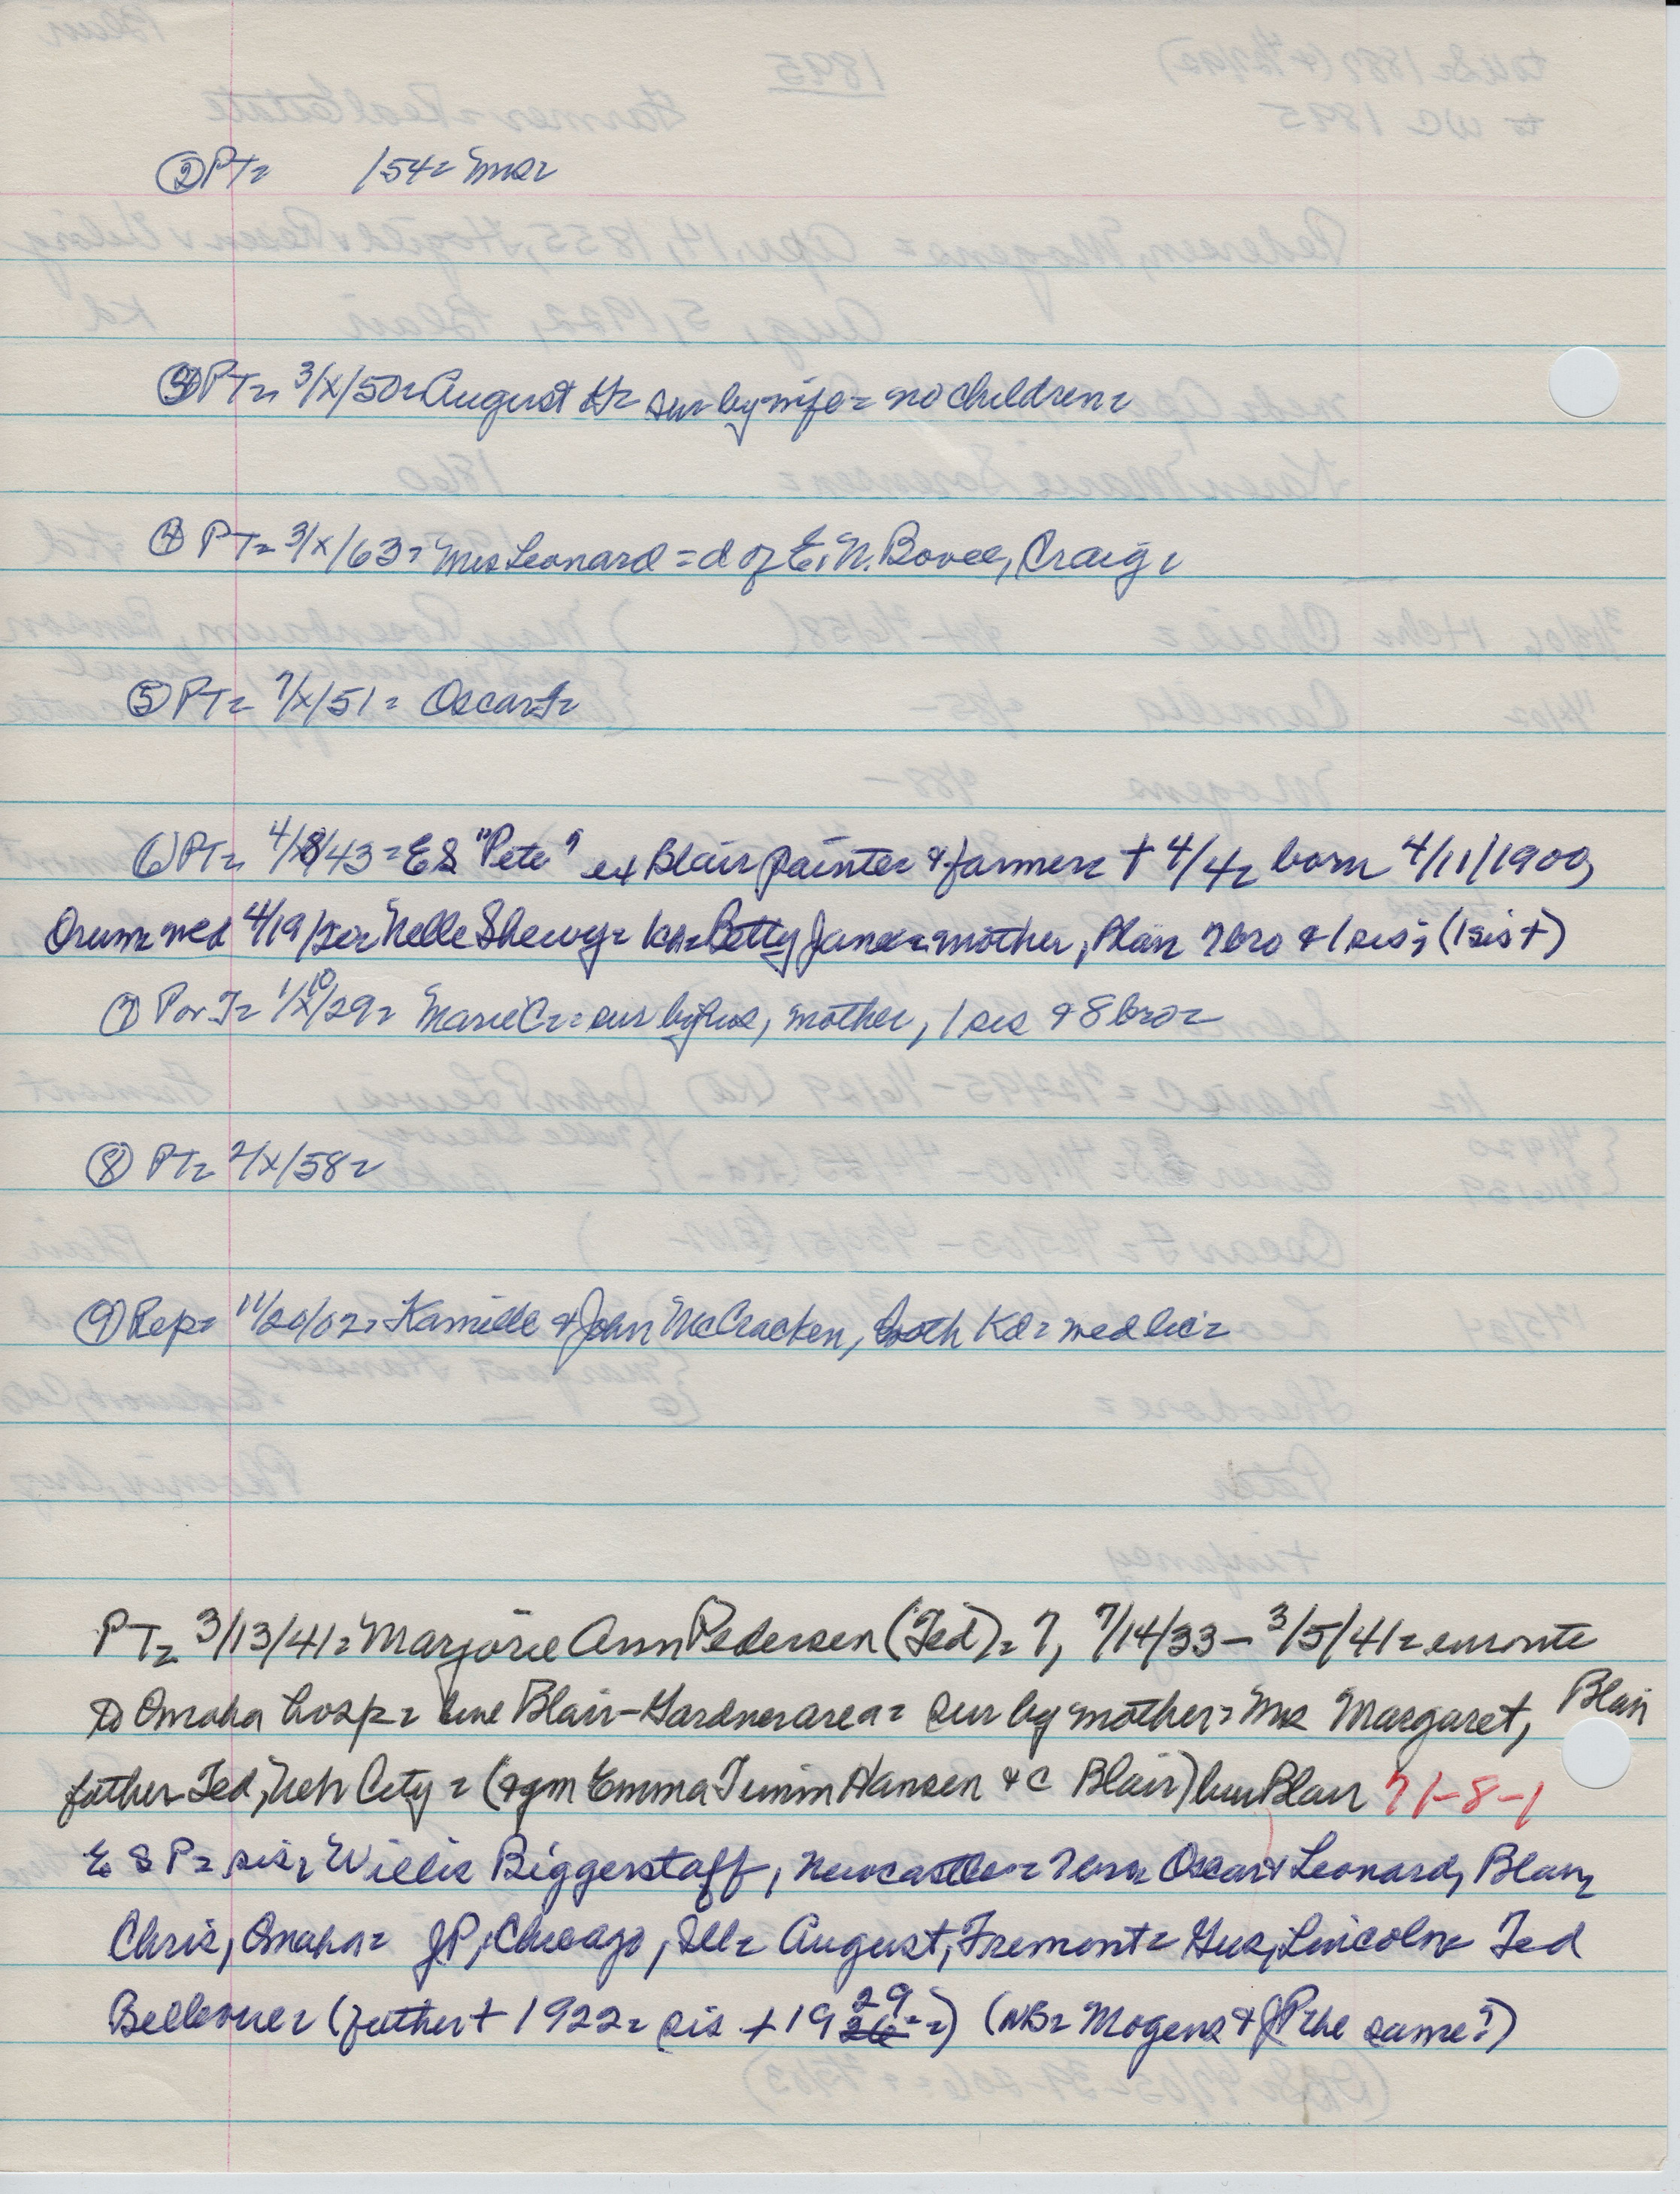 ② PT= /54= Mrs=
③ PT= 3/x/50= August H= sur by wife= no children=
④ PT= 3/x/63= Mrs Leonard = d of E.N. Bovee, Craig,
⑤ PT= 7/x/51= Oscar F=
⑥ PT= 4/8/43= ES "Pete" ex Blair painter & farmer= + 4/4= born 4/11/1900,
Orum= med 4/19/ Nelle Shewy= Betty Jane= mother, Blair 7 bro & 1 sis; (1 sis +)
⑦ Por T= 1/10/29= Marie C= sur by hus, mother, 1 sis & 8 bro=
⑧ PT= 2/x/58=
⑨ Rep= 11/20/02= Kamille & John McCracken, both Kd= med lic=
PT= 3/13/41= Marjorie Ann Pedersen (Ted)= 7, 7/14/33 – 3/5/41= enroute
to Omaha hosp= live Blair-Gardner area= sur by mother= Mrs Margaret, Blair
father Ted, Neh City = (& gm Emma Hansen & C Blair) bur Blair 71-8-1
E S P= sis, Willis Biggerstaff, Newcastle= 7 bro= Oscar & Leonard, Blair,
Chris, Omaha= JP, Chicago, Ill= August, Fremont= Gus, Lincoln= Ted
Bellevue= (father + 1922= sis + 19 26 29 =) (NB= Mogens & JP the same?)